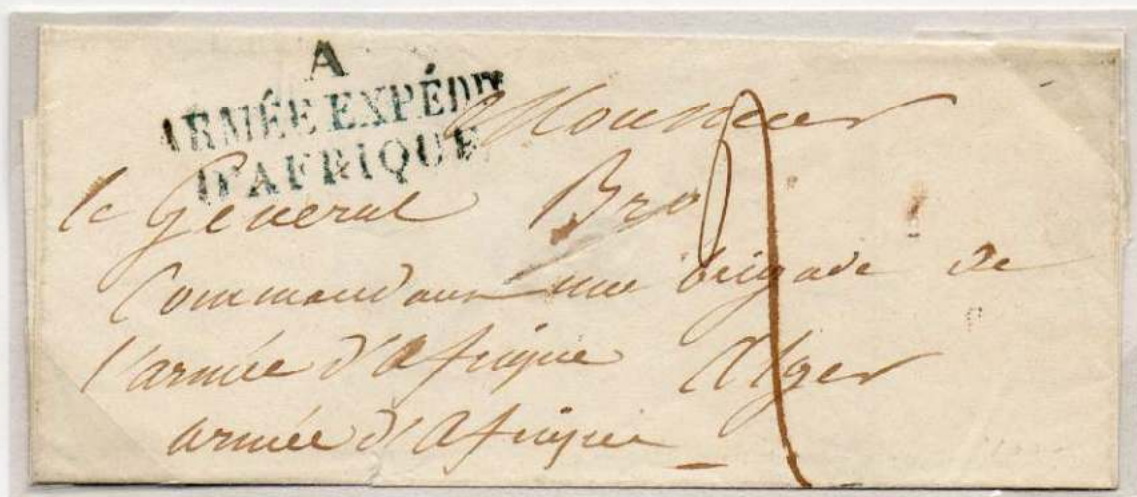 A
ARMÉE EXPÉDRE
D'AFRIQUE
Monsieur
le General Bro
Commandant une brigade de
l'armée d'Afrique Alger
armée d'Afrique